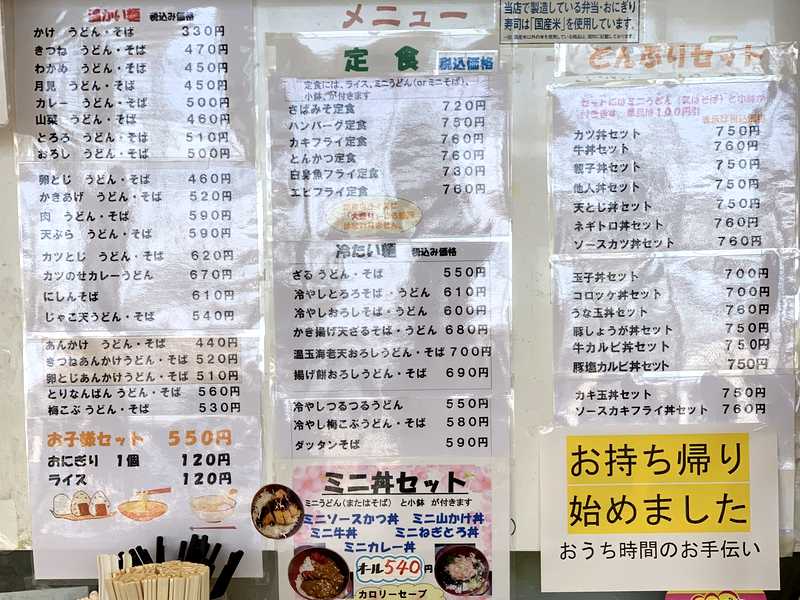 温かい麺 税込み価格
かけ うどん・そば 330円
きつね うどん・そば 470円
わかめ うどん・そば 450円
月見 うどん・そば 450円
カレー うどん・そば 500円
山菜 うどん・そば 460円
とろろ うどん・そば 510円
おろし うどん・そば 500円
卵とじ うどん・そば 460円
かきあげ うどん・そば 520円
肉 うどん・そば 590円
天ぷら うどん・そば 590円
カツとじ うどん・そば 620円
カツのせカレーうどん 670円
にしんそば 610円
じゃこ天うどん・そば 540円
あんかけ うどん・そば 440円
きつねあんかけうどん・そば 520円
卵とじあんかけうどん・そば 510円
とりなんばん うどん・そば 560円
梅こぶ うどん・そば 530円
お子様セット 550円
おにぎり 1個 120円
ライス 120円
メニュー
定食 税込価格
定食には、ライス、ミニうどん(orミニそば)、
小鉢、が付きます
さばみそ定食 720円
ハンバーグ定食 780円
カキフライ定食 760円
とんかつ定食 760円
白身魚フライ定食 730円
エビフライ定食 760円
冷たい麺 税込み価格
ざる うどん・そば 550円
冷やしとろろそば・うどん 610円
冷やしおろしそば・うどん 600円
かき揚げ天ざるそば・うどん 680円
温玉海老天おろしうどん・そば 700円
揚げ餅おろしうどん・そば 690円
冷やしつるつるうどん 550円
冷やし梅こぶうどん・そば 580円
ダッタンそば 590円
ミニ丼セット
ミニうどん(またはそば) と小鉢 が付きます
ミニソースかつ丼 ミニ山かけ丼
ミニ牛丼 ミニねぎとろ丼
ミニカレー丼
オール540円
カロリーセーブ
当店で製造している弁当・おにぎり
寿司は「国産米」を使用しています。
どんぶりセット
セットにはミニうどん(又はそば)と小鉢が
付きます。単品は100円引
表示は税込価格
カツ丼セット 750円
牛丼セット 760円
親子丼セット 750円
他人丼セット 750円
天とじ丼セット 750円
ネギトロ丼セット 760円
ソースカツ丼セット 760円
玉子丼セット 700円
コロッケ丼セット 700円
うな玉丼セット 760円
豚しょうが丼セット 750円
牛カルビ丼セット 750円
豚塩カルビ丼セット 750円
カキ玉丼セット 750円
ソースカキフライ丼セット 760円
お持ち帰り
始めました
おうち時間のお手伝い